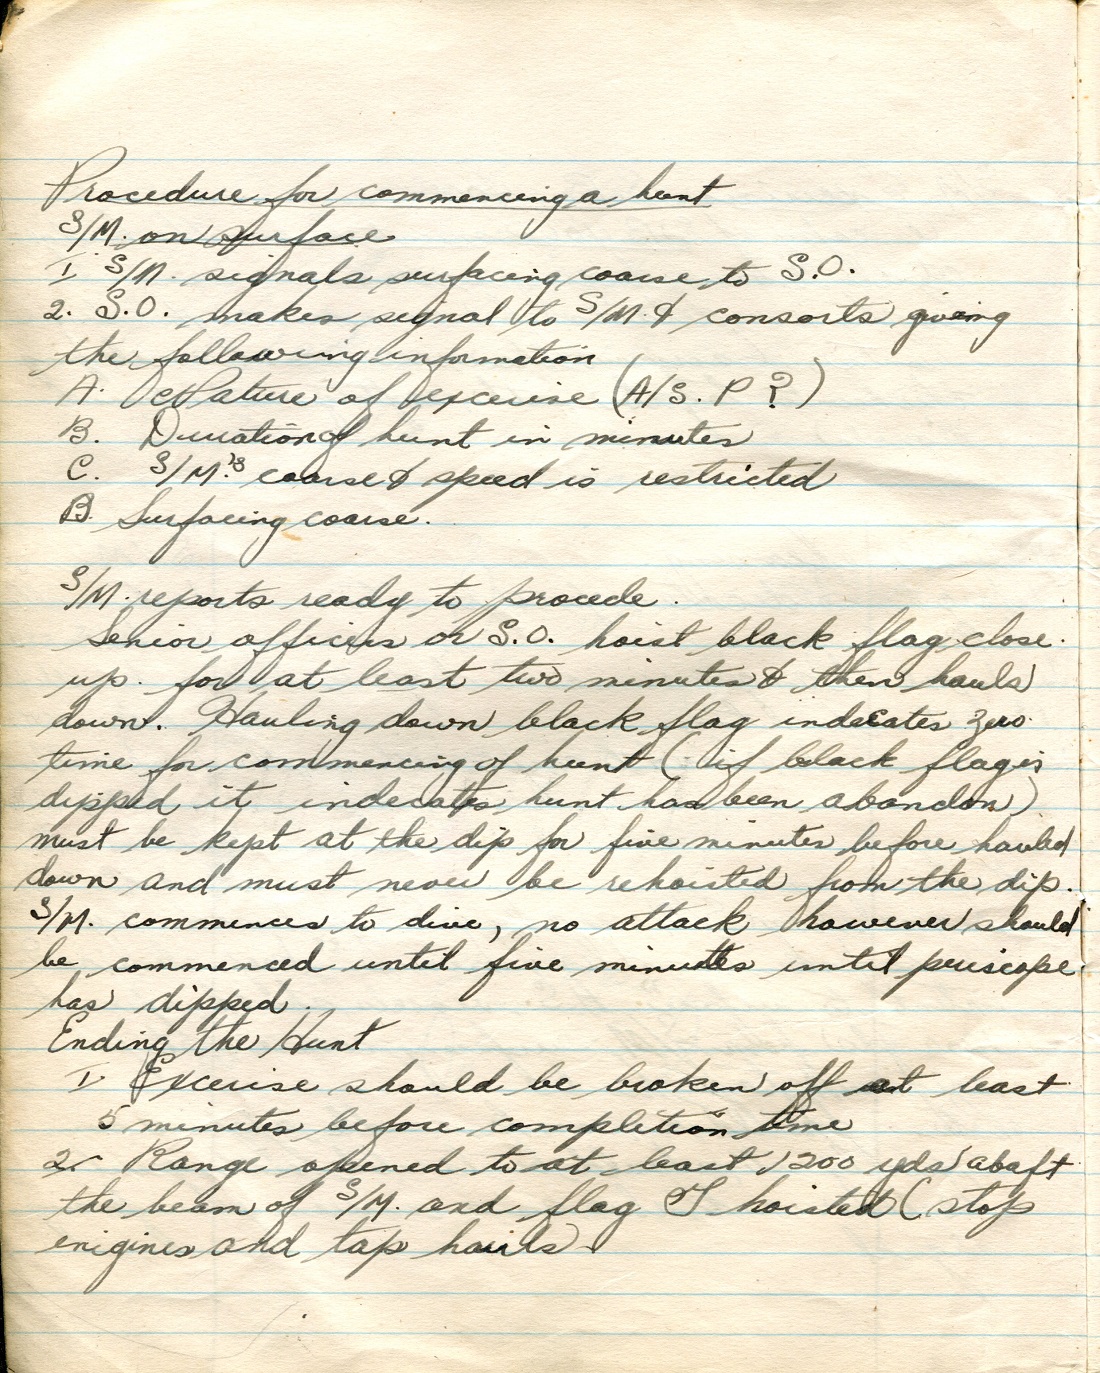 Procedure for commencing a hunt
S/M. on surface
1. S/M. signals surfacing coarse to S.O.
2. S.O. makes signal to S/M. & consorts giving
the following information
A. Nature of excerise (A/S. P ?)
B. Duration of hunt in minutes
C. S/M.'s coarse & speed is restricted
B. Surfacing coarse.
S/M. reports ready to procede.
Senior officers or S.O. hoist black flag close
up. for at least two minutes & then hauls
down. Hauling down black flag indecates zero
time for commencing of hunt (if black flag is
dipped it indecates hunt has been abandon)
must be kept at the dip for five minutes before hauled
down and must never be rehoisted from the dip.
S/M. commences to dive, no attack however should
be commenced until five minuttes until periscope
has dipped.
Ending the Hunt
1. Excerise should be broken off at least
5 minutes before completion time
2. Range opened to at least 1200 yds abaft
the beam of S/M. and flag hoisted (stop
enigines and tap hauls)